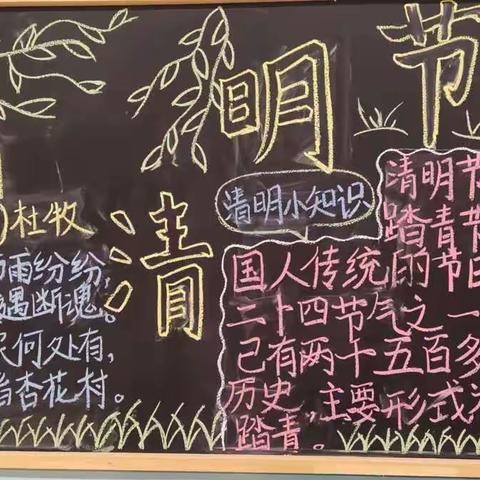 清明节
杜牧
雨纷纷,
遇断魂。
何处有,
杏花村。
清明小知识
清明节
踏青节
国人传统的节日
二十四节气之一
已有两千五百多
历史,主要形式为
踏青。